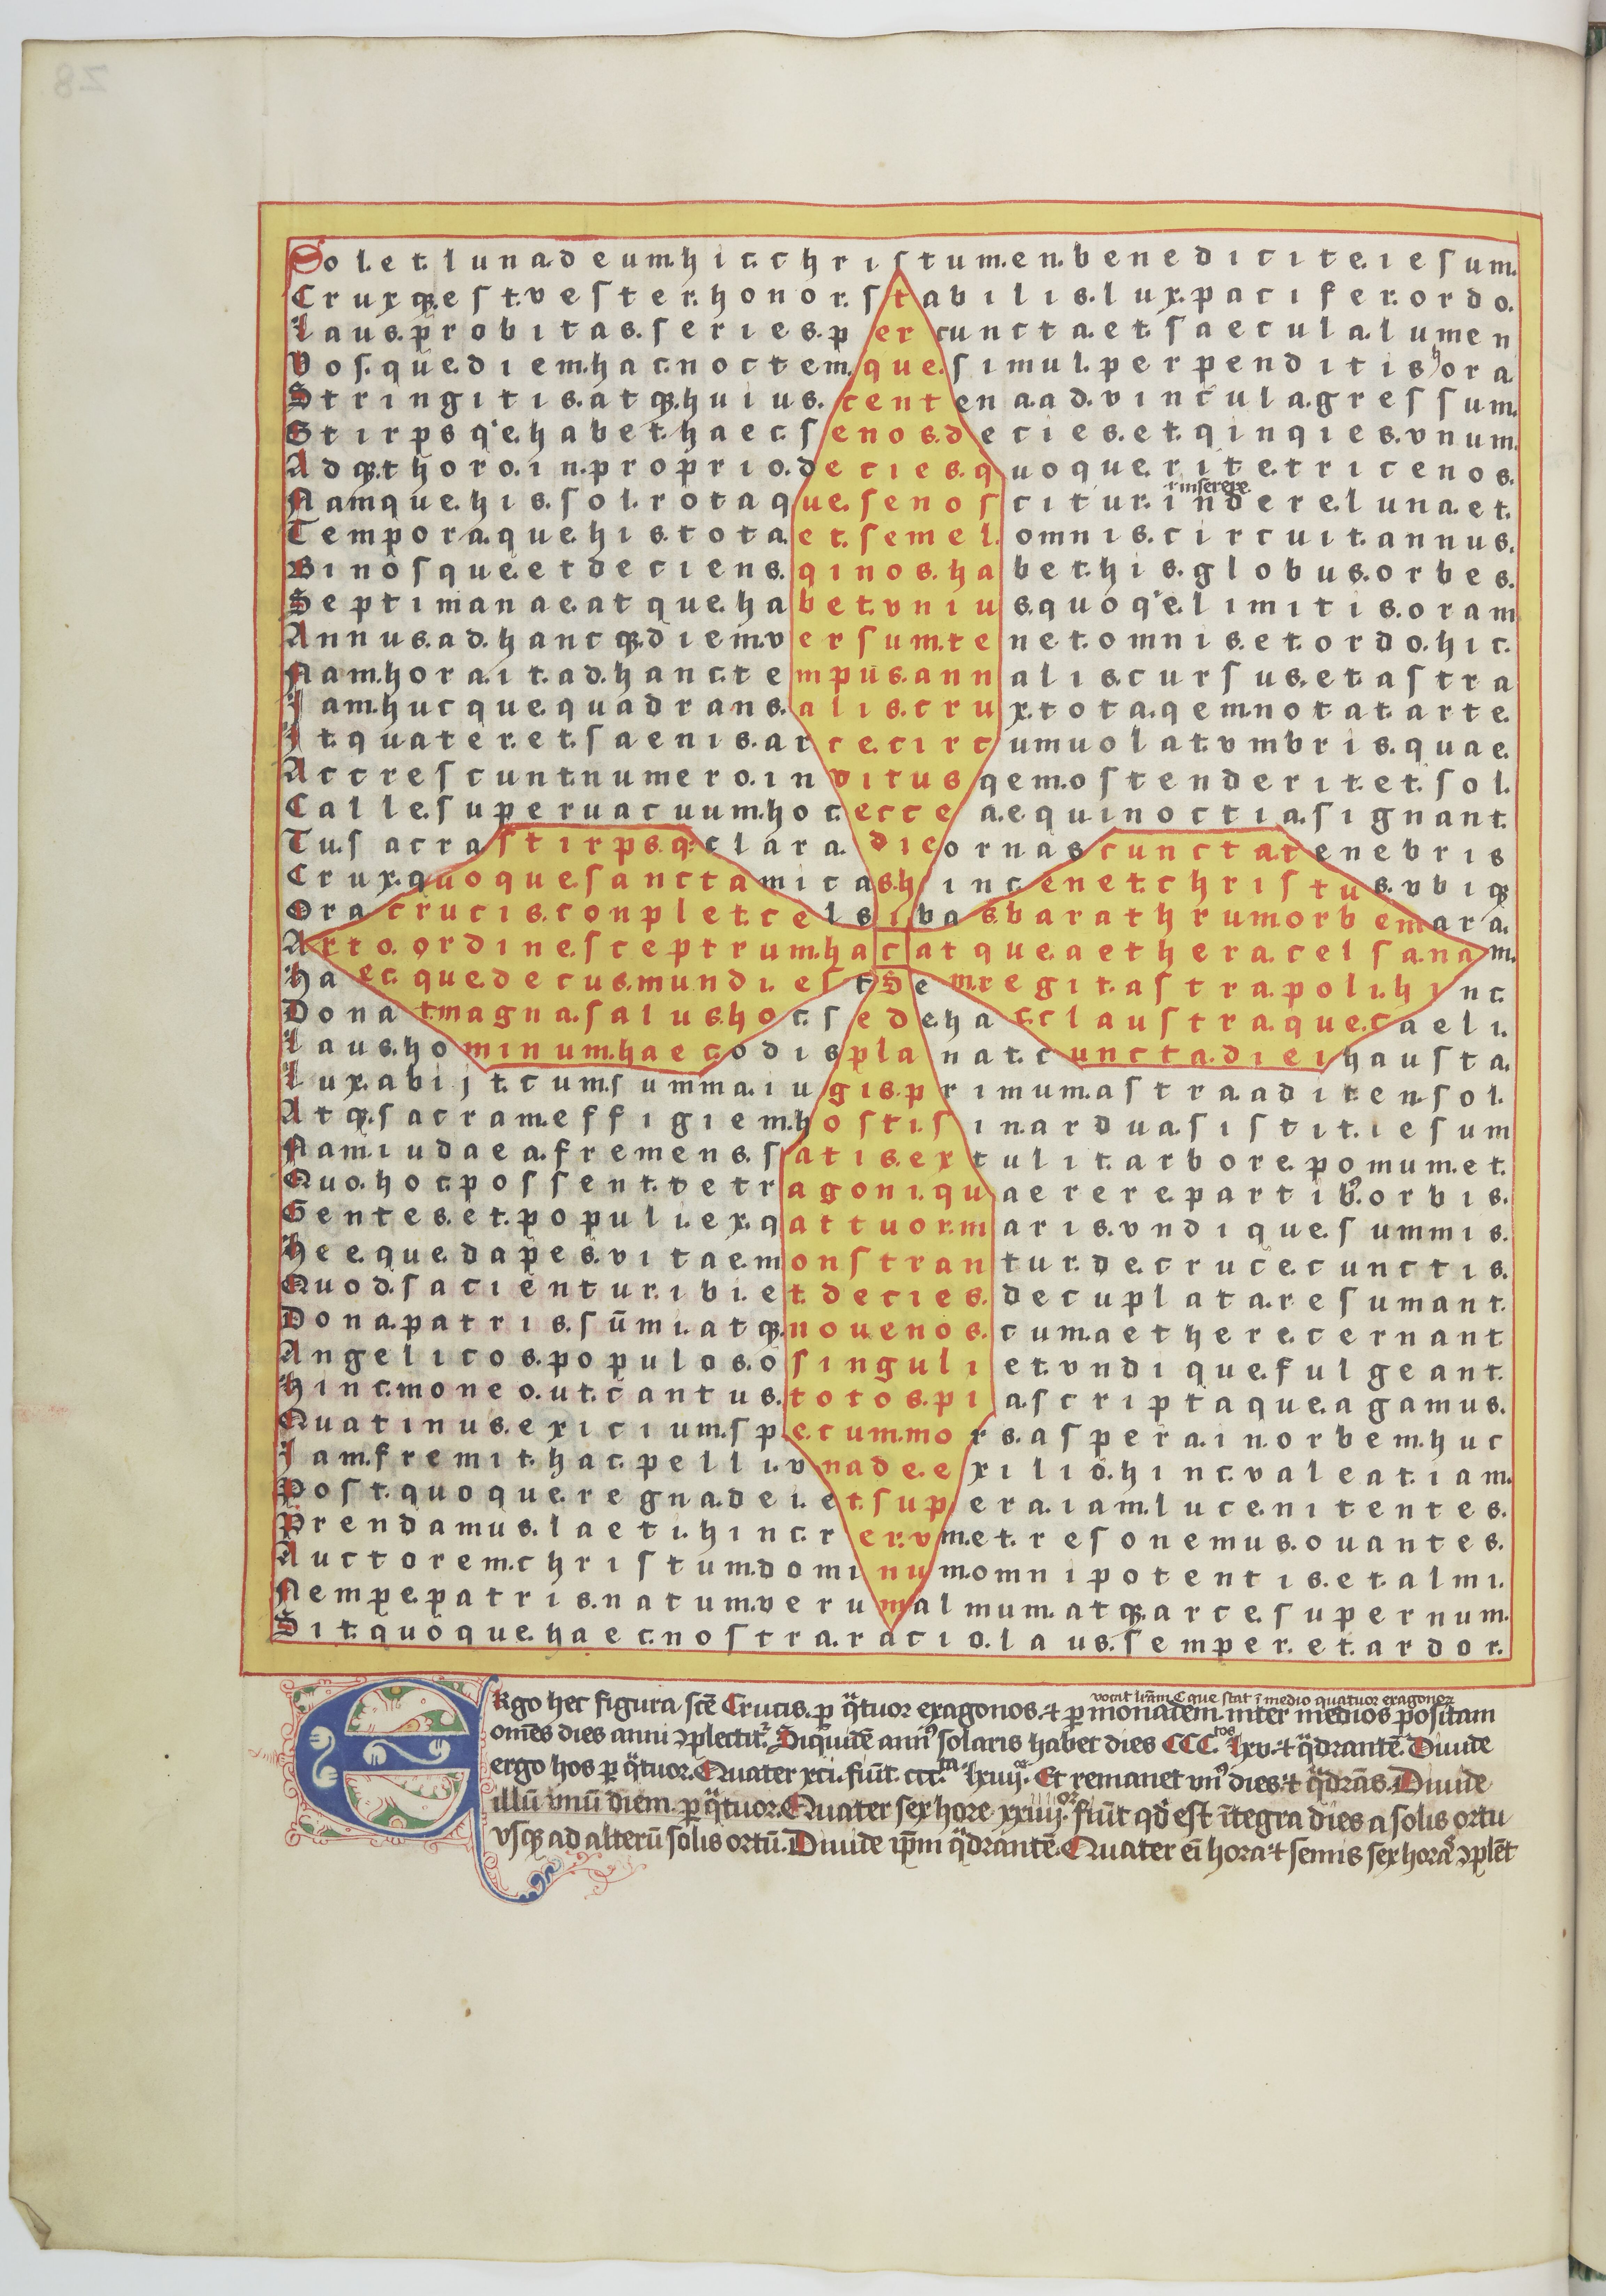 Sol. et. luna. deum. hic. christum. en. benedicite. iesum.
Cruxqȝ. est. vester. honor. stabilis. lux. pacifer. ordo.
Laus. probitas. series. per cuncta. et. saecula. lumen
Vos. que. diem. hac. noctem. que. simul. perpenditis hora
Stringitis. atqȝ. huius. centena. ad. vincula. gressum.
Stirps q'e. habet. haec. senos. decies. et. qinqies. vnum.
Adqȝ. thoro. in. proprio. decies. quoque. rite. tricenos.
Namque. his. sol. rotaque. senoscitur. inderel. luna. et.
r inserere.
Tempora. que. his. tota. et. semel. omnis. circuit. annus.
Binosque. et deciens. qinos. habet. his. globus. orbes.
Septimanae. atque. habet. vnius. quoq'e. limitis. oram
Annus. ad. hancqȝ. diem. versum. tenet. omnis. et. ordo. hic.
Nam. hora. it. ad. hanc. tempus. annalis. cursus. et. astra
Iam. huc que. quadrans. alis. crux. tota. qem. notat. arte.
It. quater. et. saenis. arce. circumuolat. vmbris. quae.
Accrescunt. numero. in vitus qem. ostenderit. et. sol.
Calle. superuacuum. hoc. ecce a. equinoctia. signant.
Tu. sacra stirps. q. clara. die ornas cuncta. tenebris
Crux. quoque. sancta micas. hinc. enet. christus. vbiqȝ
Ora crucis. conplet. celsi bas barathrum orbem ara.
Arto. ordine. sceptrum. hac atque aethera. celsa. nam.
Haec. que. decus. mundi. est Se m. regit. astra. poli. hinc
Dona t. magna. salus. hoc. sede. hac. claustra. que. caeli.
Laus. hominum. haec. odis planat. cuncta. diei hausta.
Lux. abijt. cum. summa. iugis. primum. astra. adit en. sol.
Atqȝ. sacram. effigiem. hostis in. ardua. sistit. iesum
Nam. iudaea. fremens. satis. extulit. arbore. pomum. et.
Quo. hoc. possent. tetragoni. quaerere. partib9. orbis.
Gentes. et. populi. ex. qattuor. maris. vndique. summis.
Hee que. dapes. vitae. monstrantur. de. cruce. cunctis.
Quod. sacientur. ibi. et decies. decuplata. resumant.
Dona. patris. sūmi. atqȝ. nouenos. cum. aethere. cernant
Angelicos. populos. o singuli et. vndique. fulgeant.
Hinc. moneo. ut. cantus. totos. pia. scriptaque. agamus.
Quatinus. exicium. spe. cum. mors. aspera. in. orbem. huc
Iam. fremit. hac. pelli. vnade. e xilio. hinc. valeat. iam.
Post. quoque. regna. dei. et. supera. iam. luce. nitentes.
Prendamus. laeti. hinc. rer. vm. et. resonemus. ouantes.
Auctorem. christum. dominum. omnipotentis. et. almi.
Nempe. patris. natum. verum almum. atqȝ. arce. supernum.
Sit. quoque. haec. nostra. racio. laus. semper. et. ardor.
vocat lr̄am C que stat ī medio quatuor exagonoꝝ
ERgo hec figura scē Crucis. ꝑ qͣtuor exagonos. ⁊ ꝑ monadem. inter medios positam
om̄es dies anni ꝯplectit᷑. Siquidē ann9 solaris habet dies CCC.tos lxv. ⁊ qͣdrantē. Diuide
ergo hos ꝑ qͣtuor. Quater xci. fiūt. ccc.ta lxiiijor. Et remanet vn9 dies. ⁊ qͣdrās. Diuide
illū vnū diem. ꝑ qͣtuor. Quater sex hore xxiiijor. fiūt qd̓ est ītegra dies a solis ortu
vsqȝ ad alterū solis ortū. Diuide ip̄m qͣdrantē. Quater eī hora ⁊ semis sex horaꝭ ꝯplēt